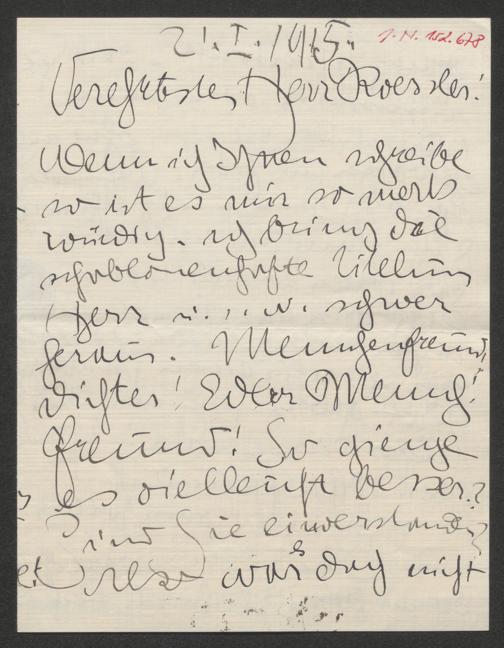 21. I. 1915.
I. N. 152.678
Verehrtester Herr Roessler!
Wenn ich Ihnen schreibe
so ist es mir so merk
würdig. ich bring die
schablonenhafte Titelung
Herr u. s. w. schwer
heraus. Menschenfreund,
Dichter! Edler Mensch!
Freund! So gienge
es vielleicht besser?
Sind Sie einverstanden?
war doch nicht